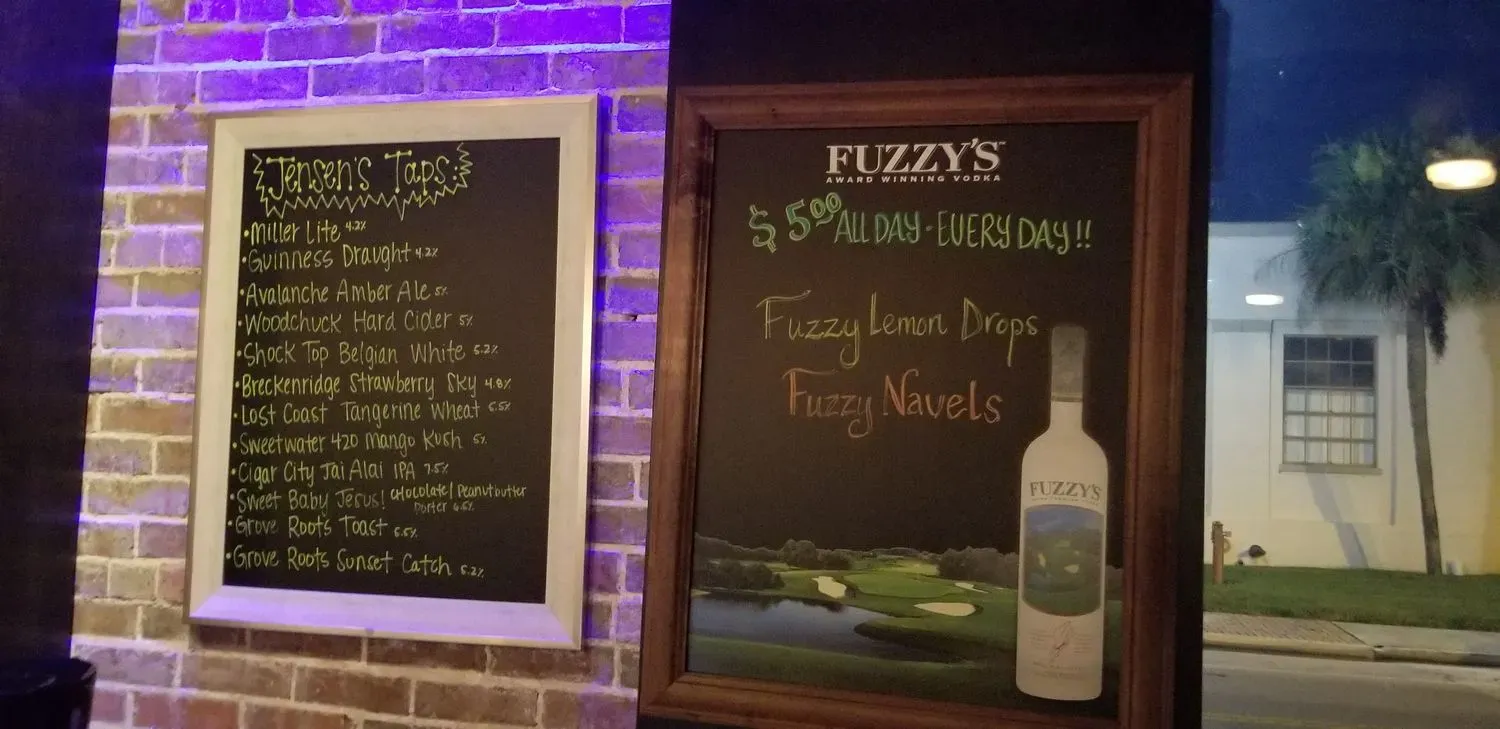 Jensen's Taps:
•Miller Lite 4.2%
•Guinness Draught 4.2%
•Avalanche Amber Ale 5%
•Woodchuck Hard Cider 5%
•Shock Top Belgian White 5.2%
•Breckenridge Strawberry Sky 4.8%
•Lost Coast Tangerine Wheat 5.5%
•Sweetwater 420 Mango Kush 5%
•Cigar City Jai Alai IPA 7.5%
•Sweet Baby Jesus! Chocolate/Peanutbutter
Porter 6.5%
•Grove Roots Toast 5.5%
•Grove Roots Sunset Catch 5.2%
FUZZY'S™
AWARD WINNING VODKA
$5.00 ALL DAY - EVERY DAY!!
Fuzzy Lemon Drops
Fuzzy Navels
FUZZY'S